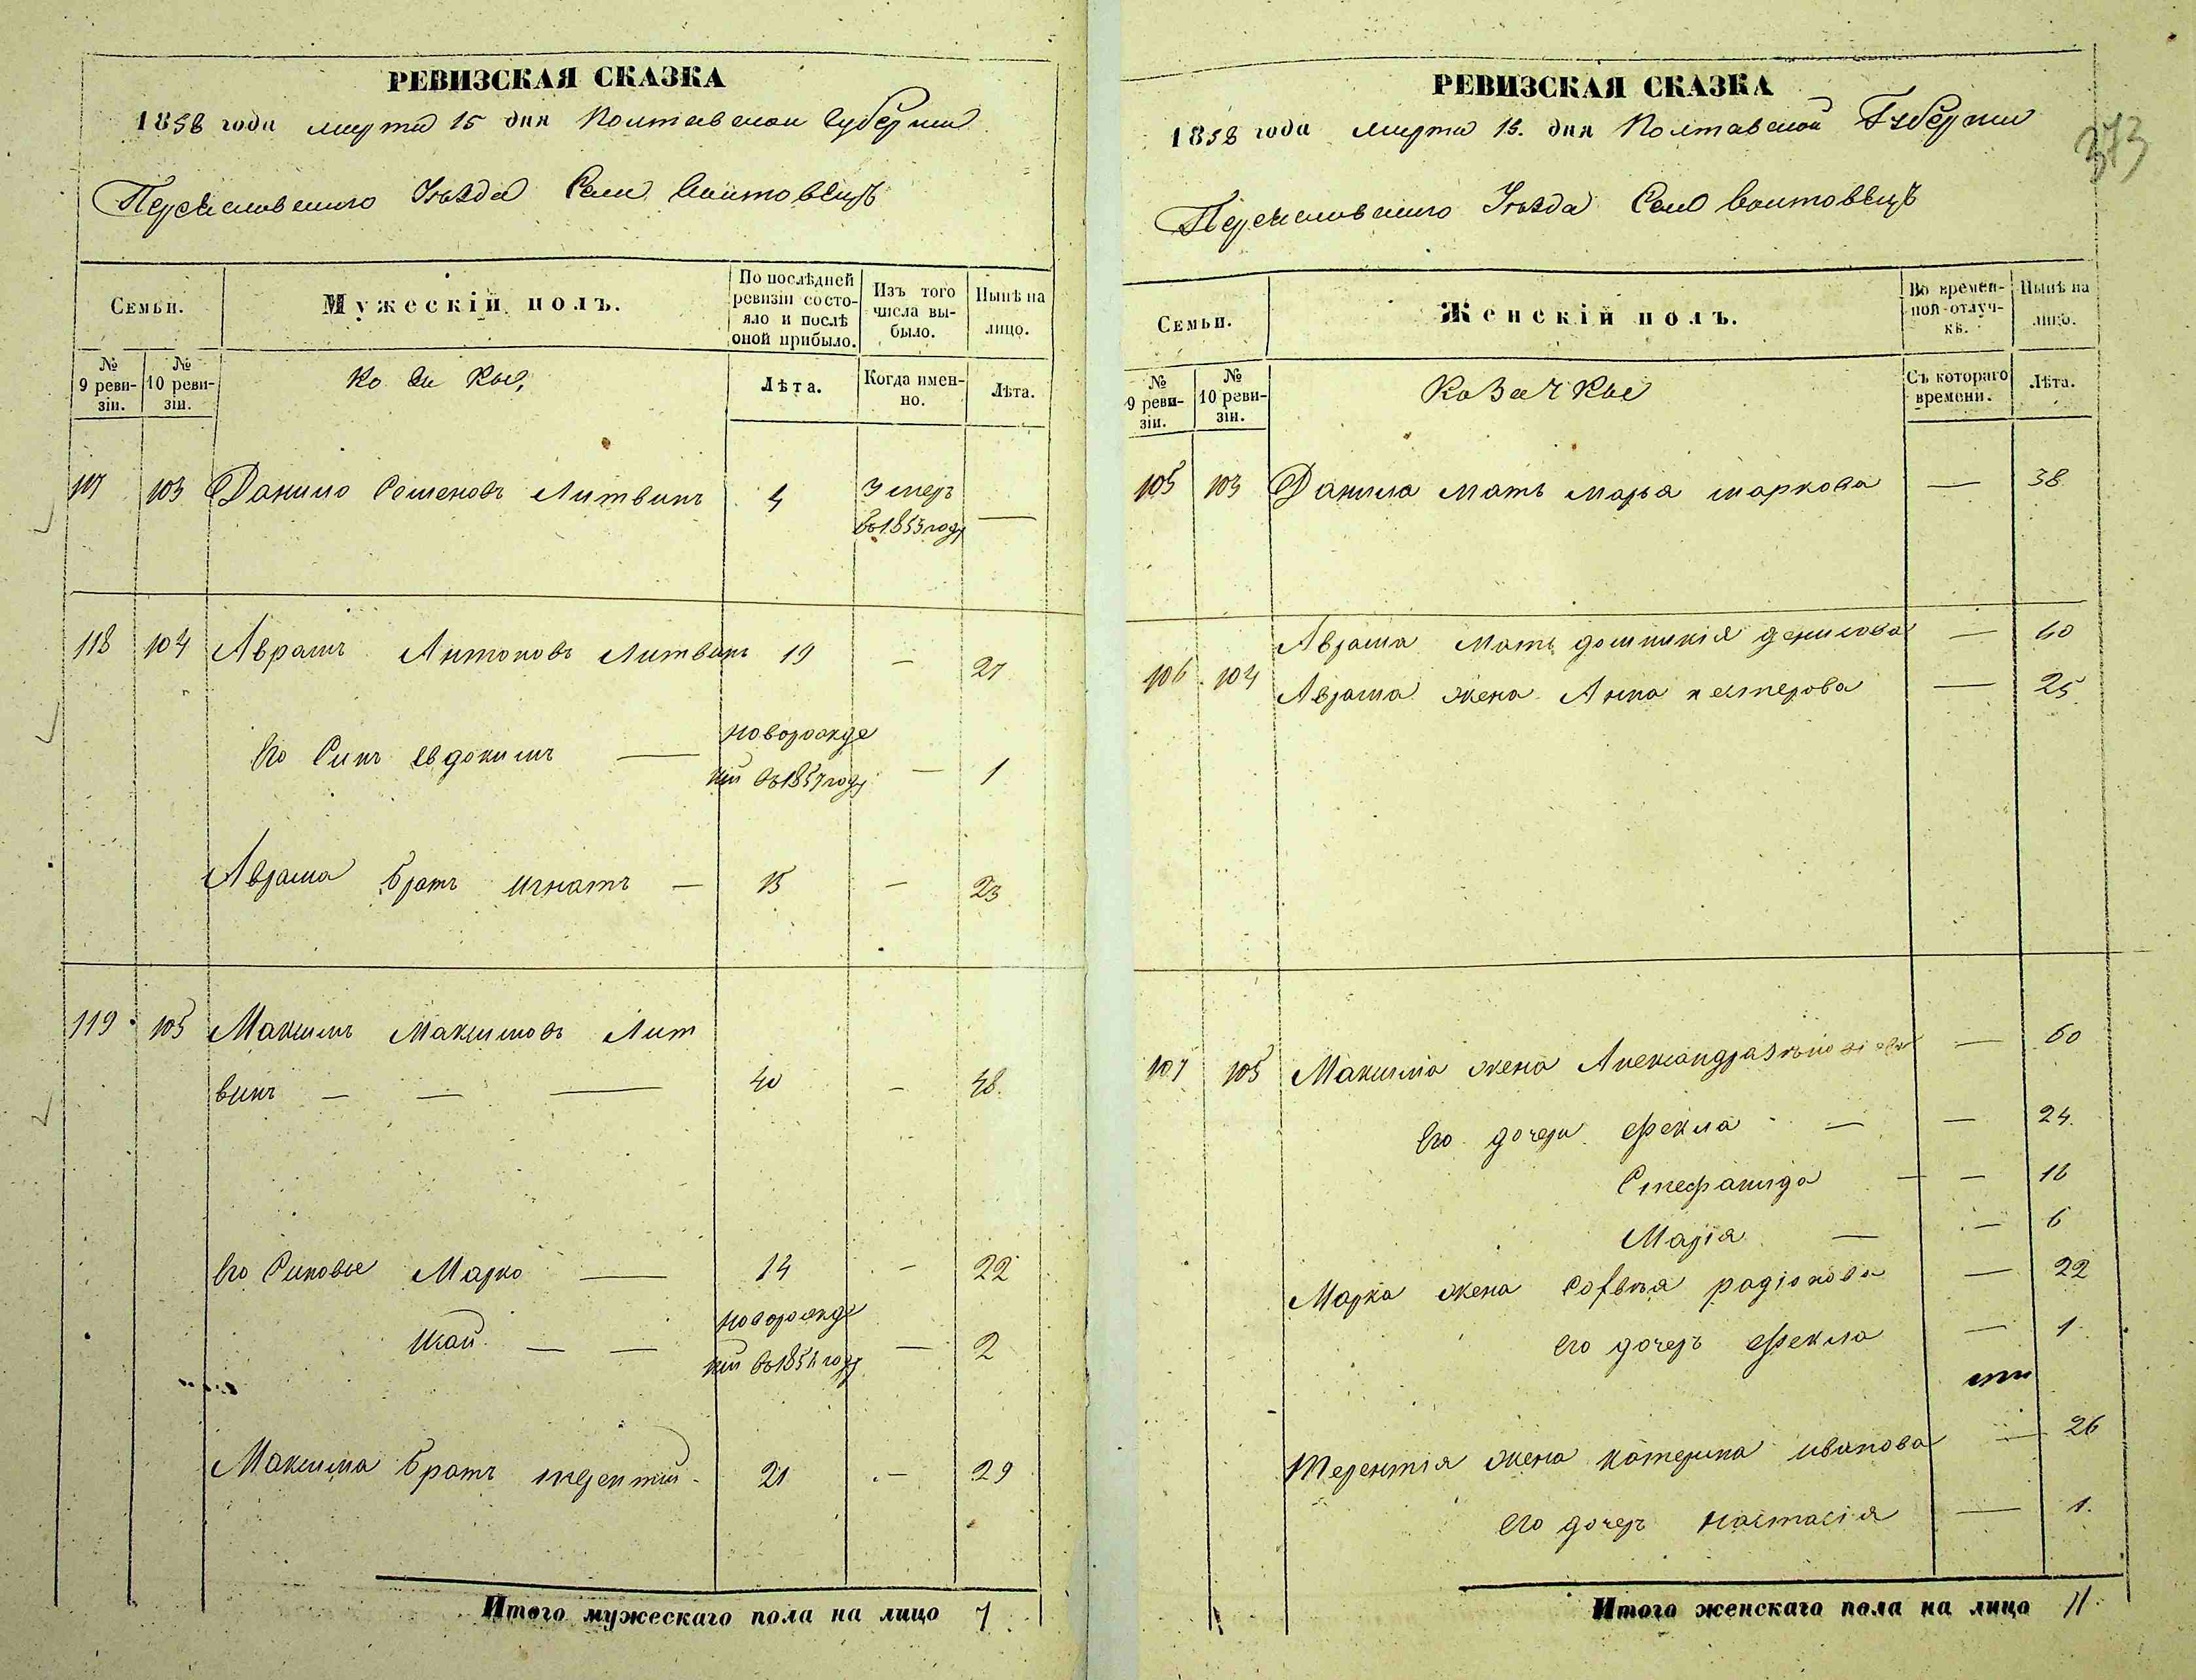 РЕВИЗСКАЯ СКАЗКА
1858 года марта 15 дня Полтавской Губерни
Переяславского Уезда Села Воитовецъ
Семьи.
Мужескій полъ.
По послѣдней ревизіи состояло и послѣ оной прибыло.
Изъ того числа выбыло.
Нынѣ на лицо.
№ 9 ревизіи.
№ 10 ревизіи.
Козаки,
Лѣта.
Когда именно.
Лѣта.
117 103 Данило Семеновъ Литвинъ 4 Змеръ —
въ 1853 году
118 104 Аврамъ Антоновъ Литвинъ 19 — 27
Его Синъ Евдокимъ — новорожде
ній въ 1857 году — 1
Аврама братъ игнатъ — 15 — 23
119 105 Максимъ Максимовъ Лит
винъ — — — 40 — 48.
Его Синовье Марко — 14 — 22
новорожде
— — ній въ 185 году — 2
Максима братъ терентий 21 — 29
Итого мужескаго пола на лицо 7
РЕВИЗСКАЯ СКАЗКА
1858 года марта 15. дня Полтавской Губерни
373
Переяславского Уезда Село Воитовецъ
Семьи.
Женскій полъ.
Во временной отлучкѣ.
Нынѣ на лицо.
№ 9 ревизіи.
№ 10 ревизіи.
Козачкы
Съ котораго времени.
Лѣта.
105 103 Данила мать марья маркова — 38
Аврама мать домникія денисова — 60
106 104 Аврама жена Анна нестерова — 25
107 105 Максима жена Александра — 50
Его дочери Фекла — — 24
Стефанида — — 16
Марія — — 6
Марка жена Софья радіонова — 22
его дочеръ Фекла — 1
Терентія жена катерина иванова — 26
его дочеръ настасія — 1.
Итого женскаго пола на лицо 11.